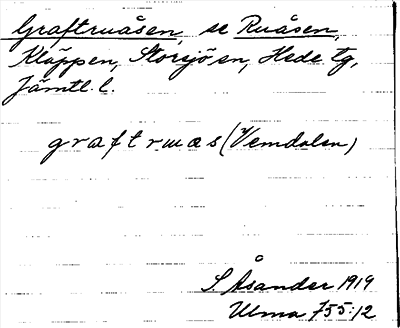 Graftruåsen, se Ruåsen,
Kläppen, Storsjö sn, Hede tg,
Jämtl. l.
graftruas (Vemdalen)
S Åsander 1919
Ulma 755:12